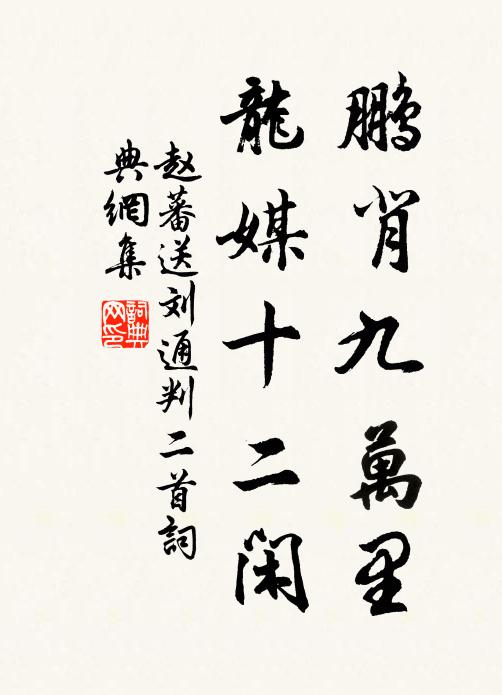 鹏肖九萬里
龍媒十二闲
赵蕃送刘通判二首詞
典網集
詞典网印